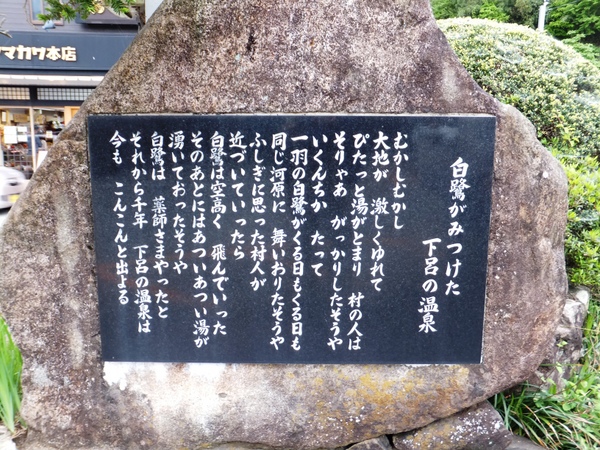 マカワ本店
白鷺がみつけた
下呂の温泉
むかしむかし
大地が 激しくゆれて
ぴたっと湯がとまり 村の人は
そりゃあ がっかりしたそうや
いくんちか たって
一羽の白鷺がくる日もくる日も
同じ河原に 舞いおりたそうや
ふしぎに思った村人が
近づいていったら
白鷺は空高く 飛んでいった
そのあとにはあついあつい湯が
湧いておったそうや
白鷺は 薬師さまやったと
それから千年 下呂の温泉は
今も こんこんと出よる